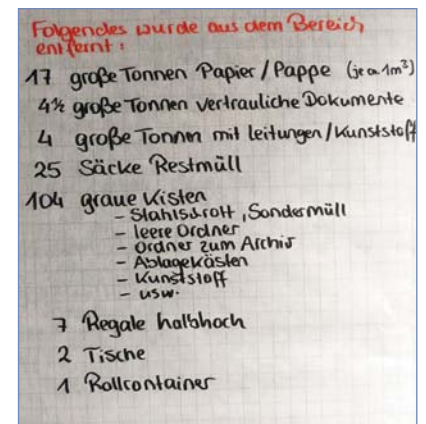 Folgendes wurde aus dem Bereich
entfernt:
17 große Tonnen Papier/Pappe (je ca 1m³)
4½ große Tonnen vertrauliche Dokumente
4 große Tonnen mit Leitungen/Kunststoff
25 Säcke Restmüll
104 graue Kisten
- Stahlschrott, Sondermüll
- leere Ordner
- Ordner zum Archiv
- Ablagekästen
- Kunststoff
- usw.
7 Regale halbhoch
2 Tische
1 Rollcontainer